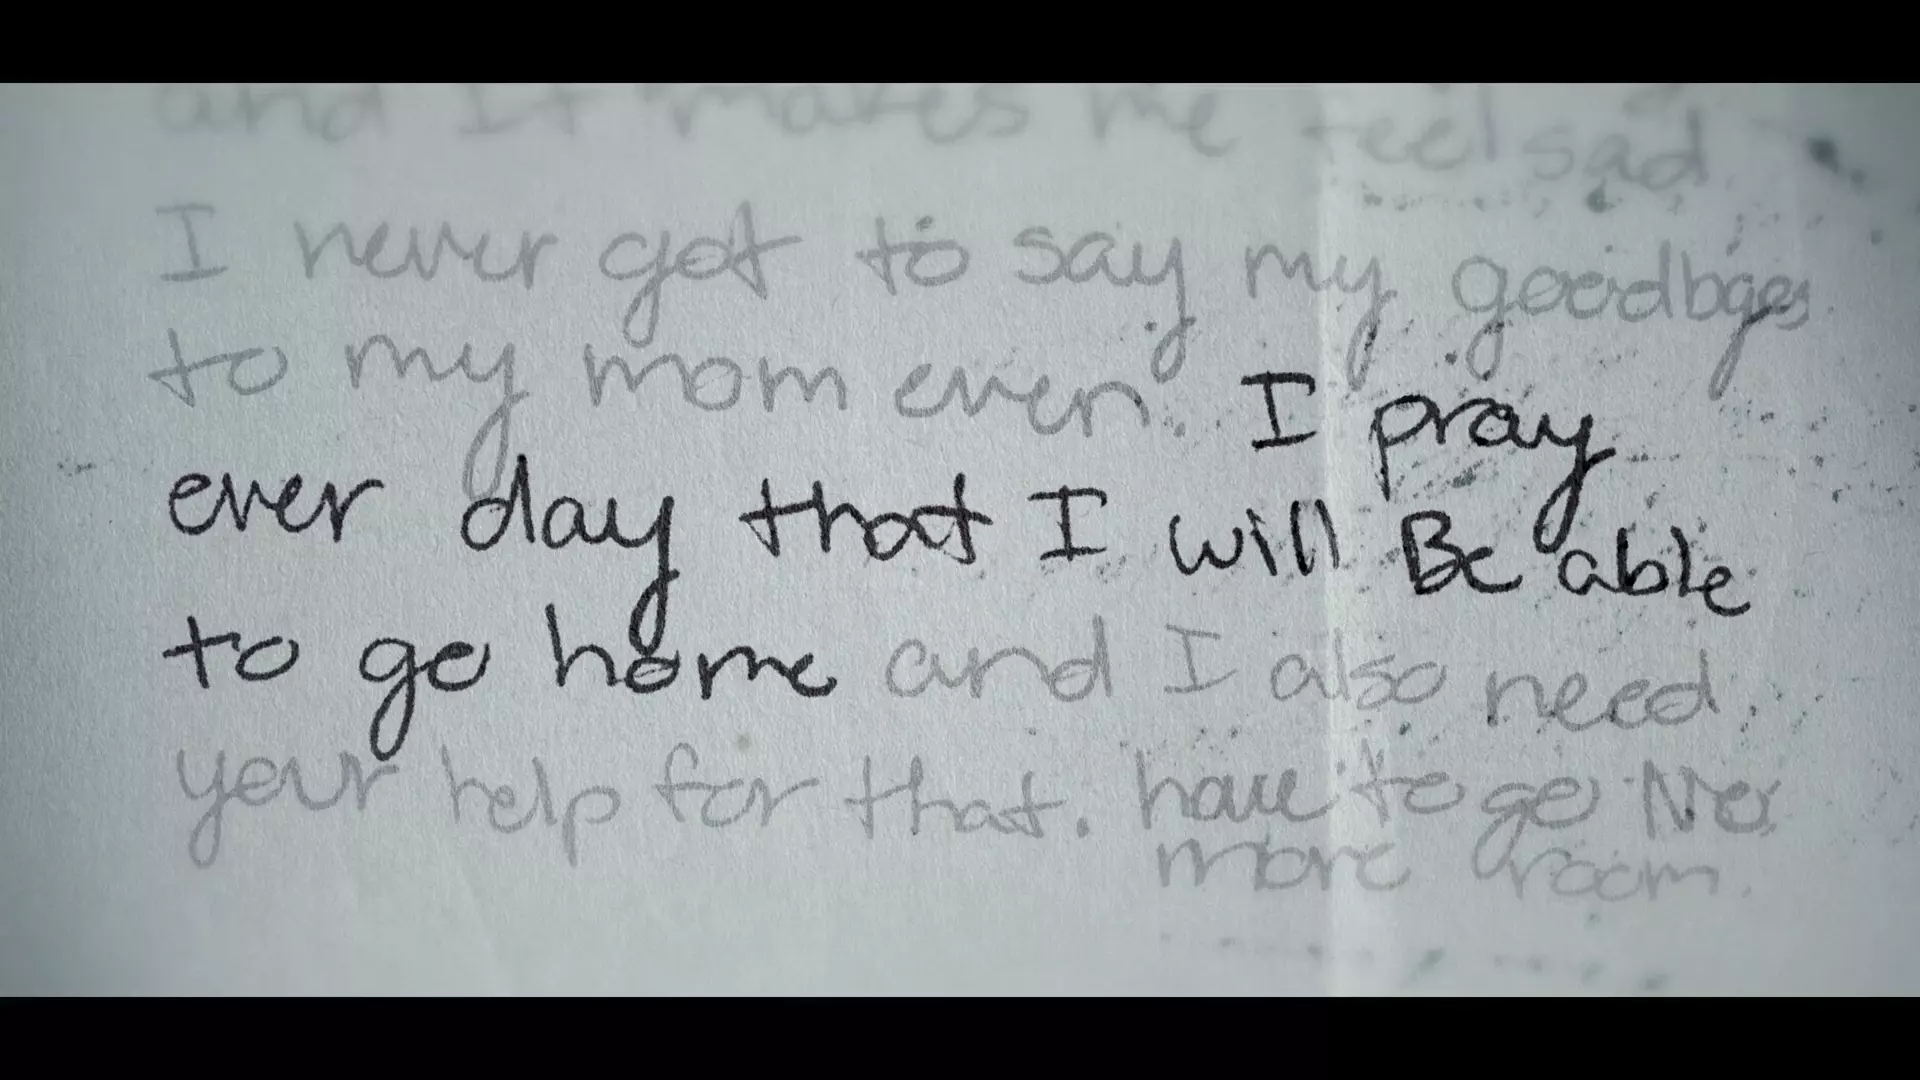 and It makes me feel sad
I never got to say my goodbyes
to my mom even. I pray
ever day that I will Be able
to go home and I also need
your help for that. have to go No
more room.